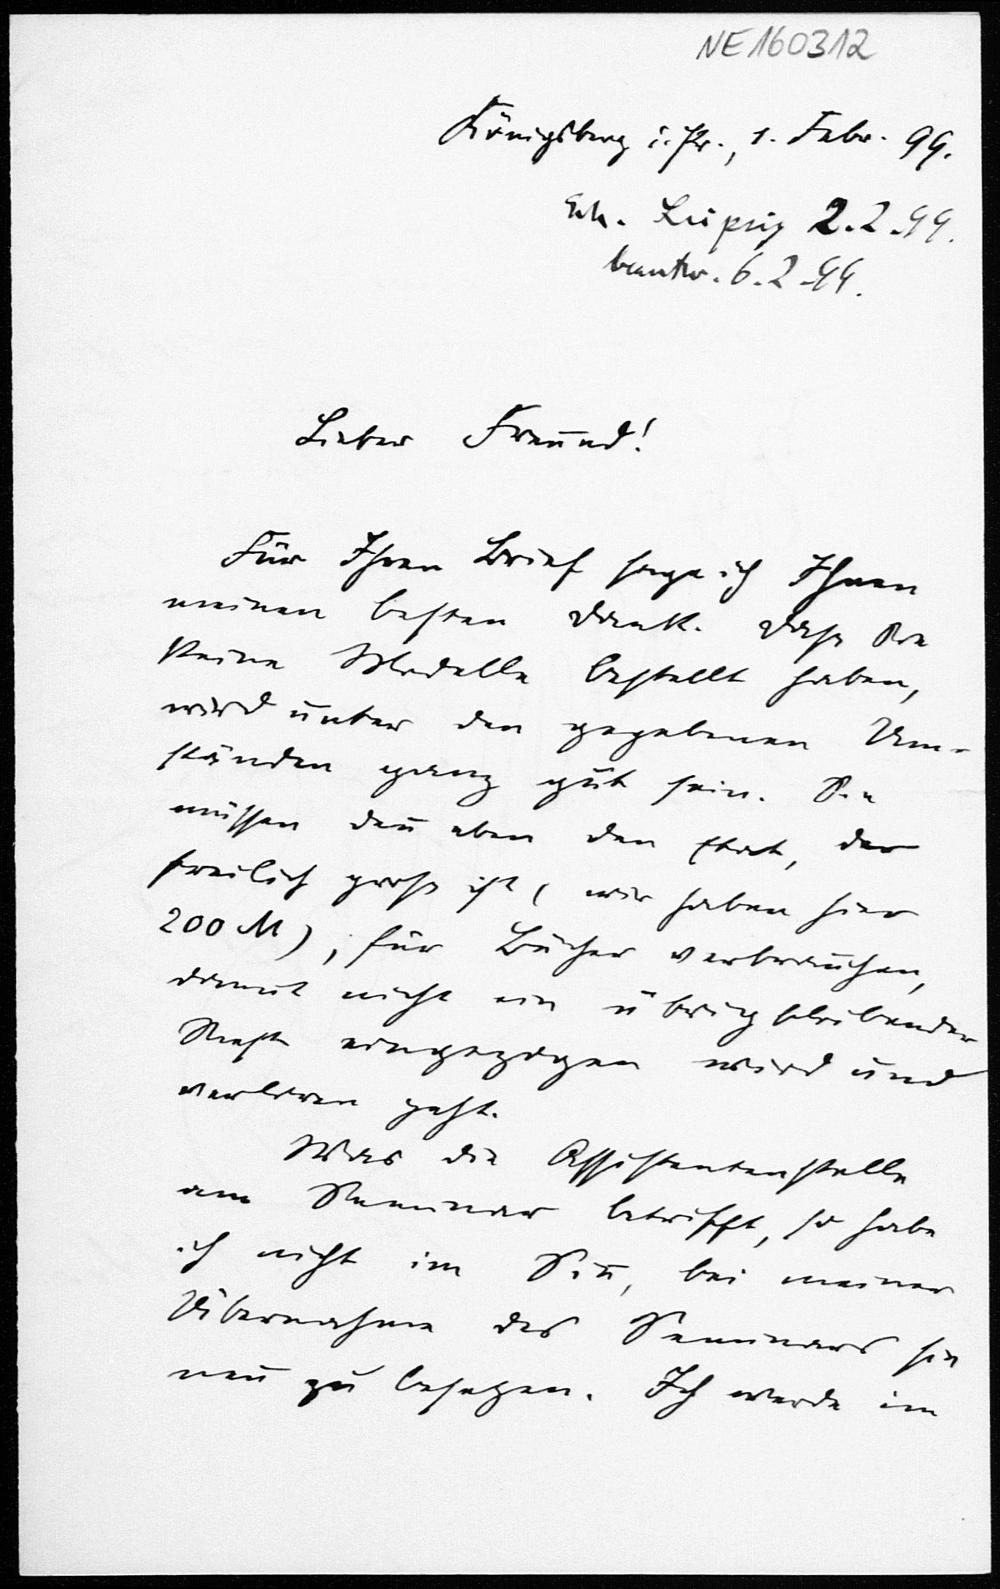 NE160312
Königsberg i. Pr., 1. Febr. 99.
Erh. Leipzig 2.2.99.
beantw. 6.2.99.
Lieber Freund!
Für Ihren Brief sage ich Ihnen
meinen besten Dank. Dass Sie
keine Modelle bestellt haben,
wird unter den gegebenen Um-
ständen ganz gut sein. Sie
müssen den eben den Etat, der
freilich gross ist (wir haben hier
200 M), für Bücher verbrauchen,
damit nicht ein übrig bleibender
Rest eingezogen wird und
verloren geht.
Was die Assistentenstelle
am Seminar betrifft, so habe
ich nicht im Sinn, bei meiner
Übernahme des Seminars sie
neu zu besetzen. Ich werde im